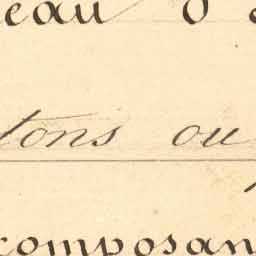 eau d
tons ou
composan